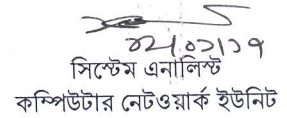 ০২/০১/১৭
সিস্টেম এনালিস্ট
কম্পিউটার নেটওয়ার্ক ইউনিট